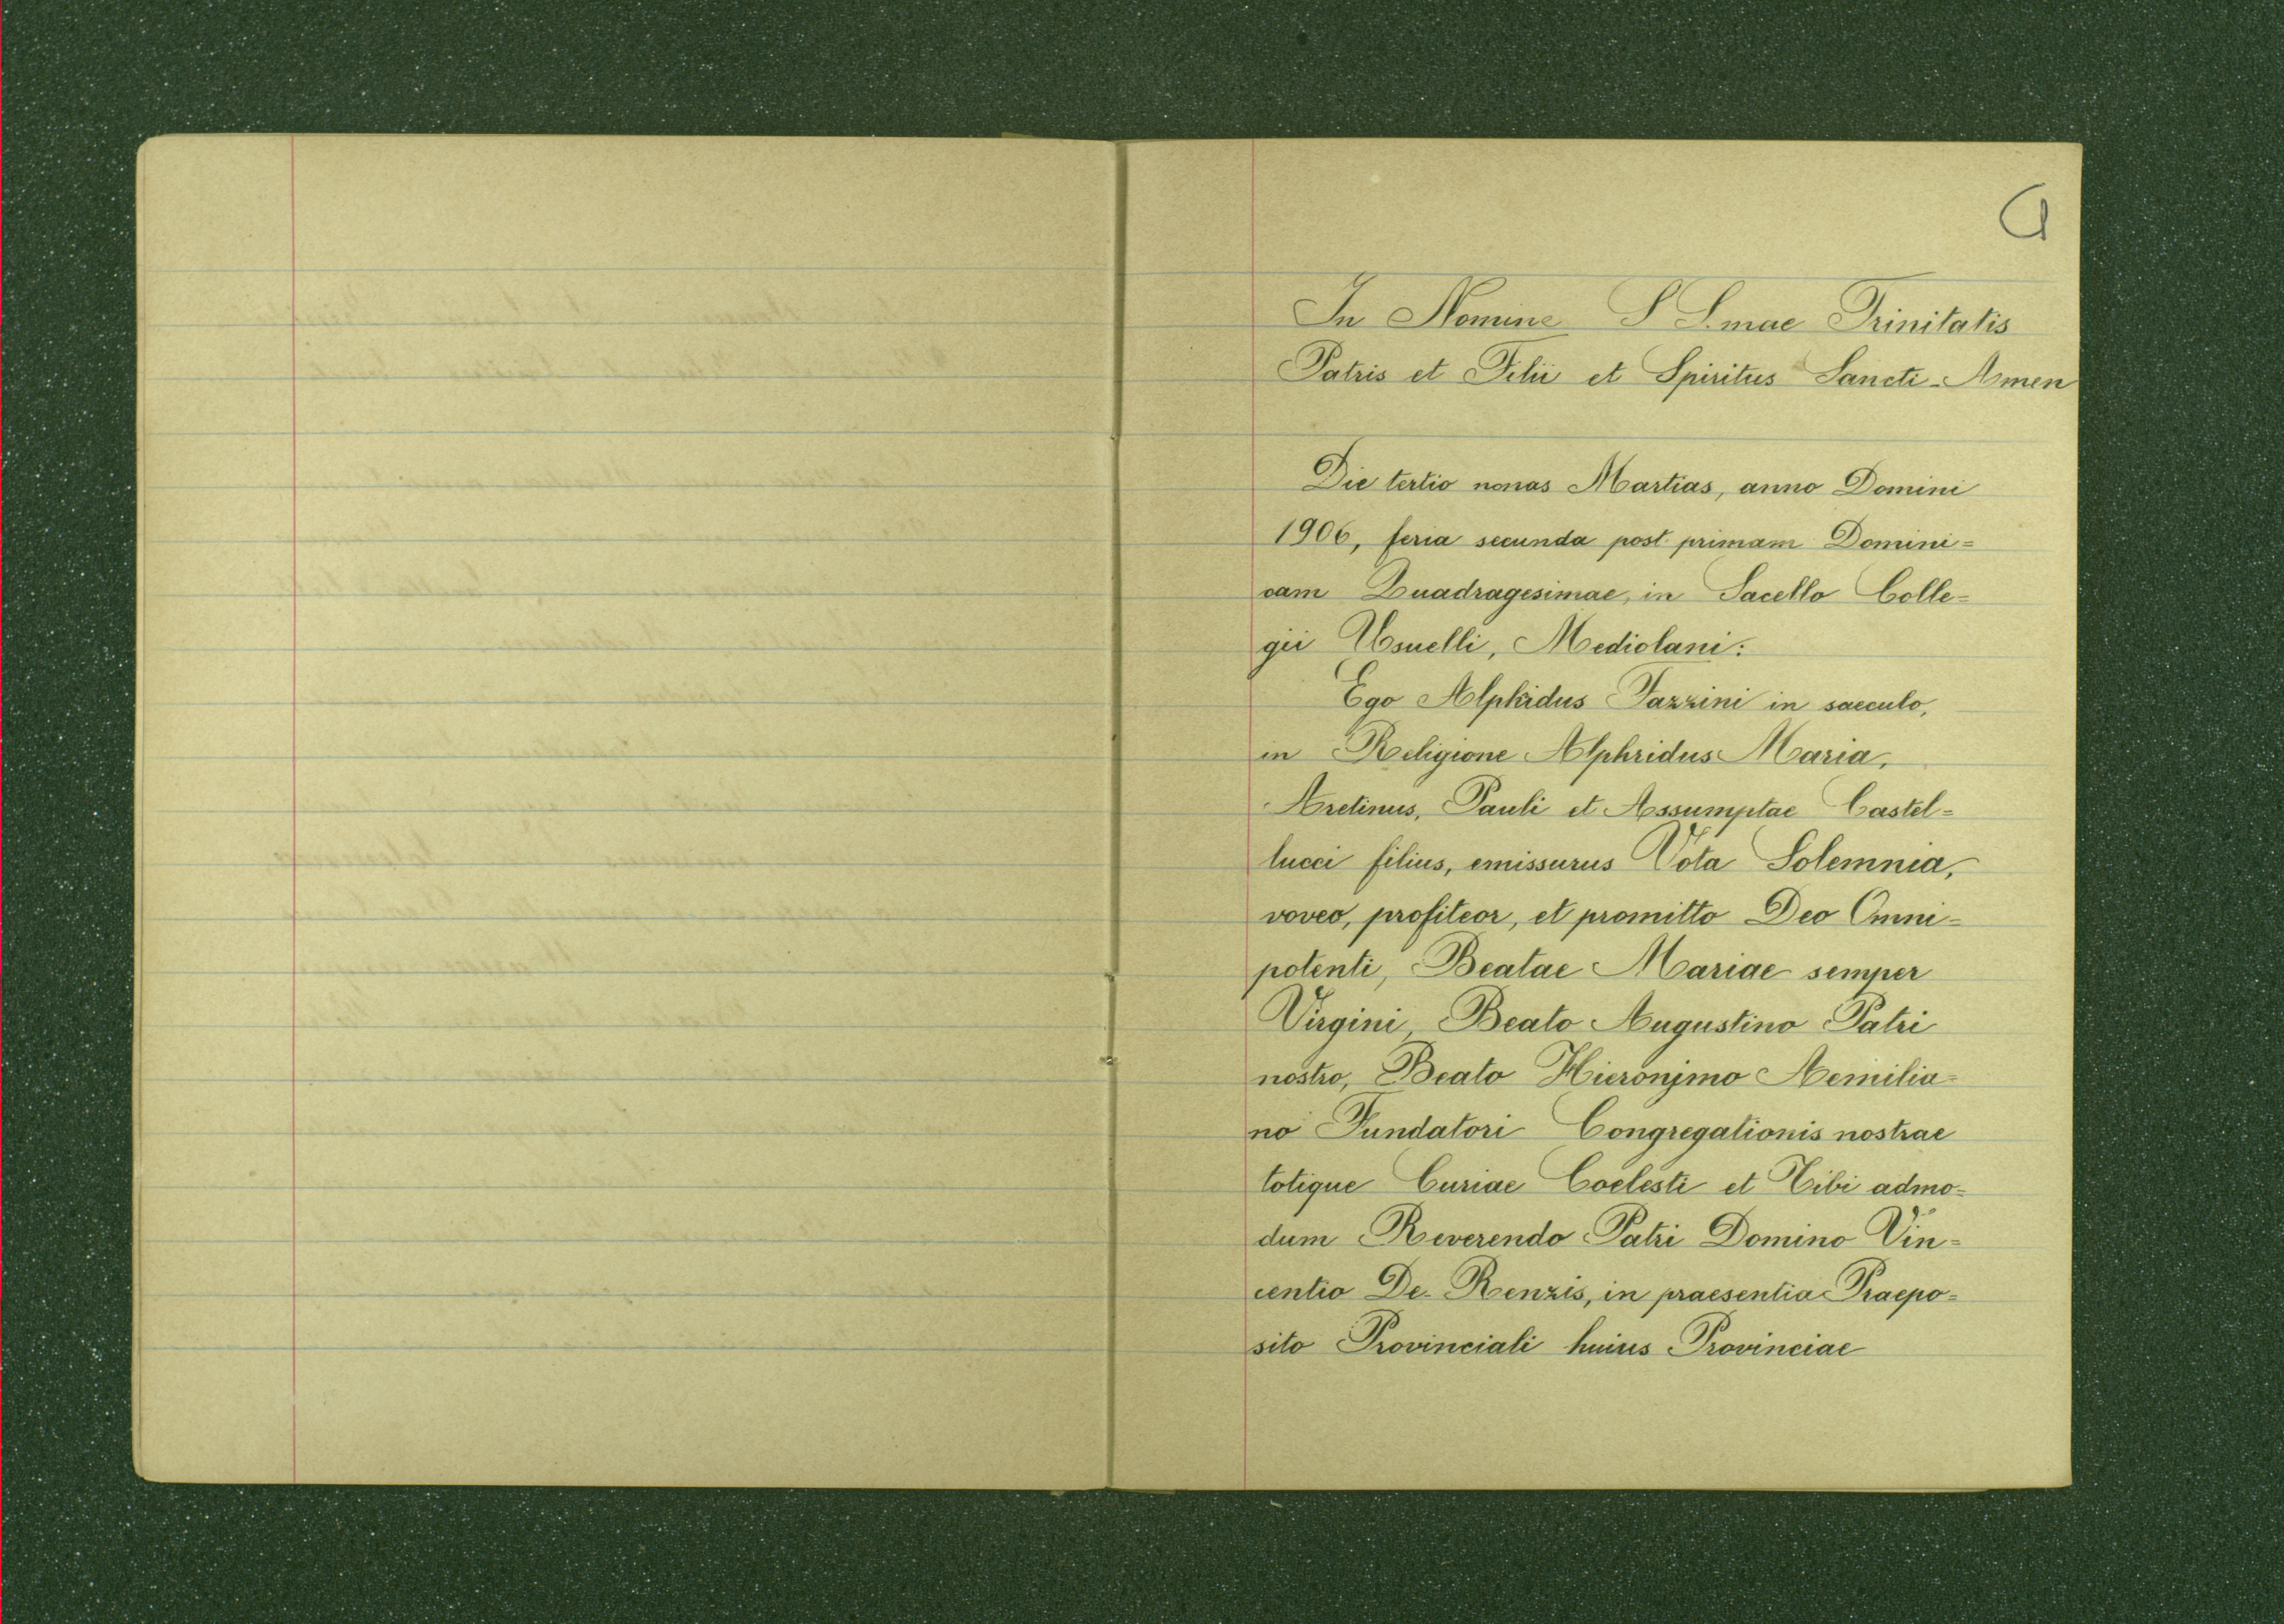 In Nomine S S.mae Trinitatis
Patris et Filii et Spiritus Sancti - Amen
Die tertio nonas Martias, anno Domini
1906, feria secunda post primam Domini=
cam Quadragesimae, in Sacello Colle=
gii Usuelli, Mediolani:
Ego Alphridus Tazzini in saeculo,
in Religione Alphridus Maria,
Aretinus, Pauli et Assumptae Castel=
lucci filius, emissurus Vota Solemnia,
voveo, profiteor, et promitto Deo Omni=
potenti, Beatae Mariae semper
Virgini, Beato Augustino Patri
nostro, Beato Hieronjmo Aemilia=
no Fundatori Congregationis nostrae
totique Curiae Coelesti et Tibi admo=
dum Reverendo Patri Domino Vin=
centio De Renzis, in praesentia Praepo=
sito Provinciali huius Provinciae